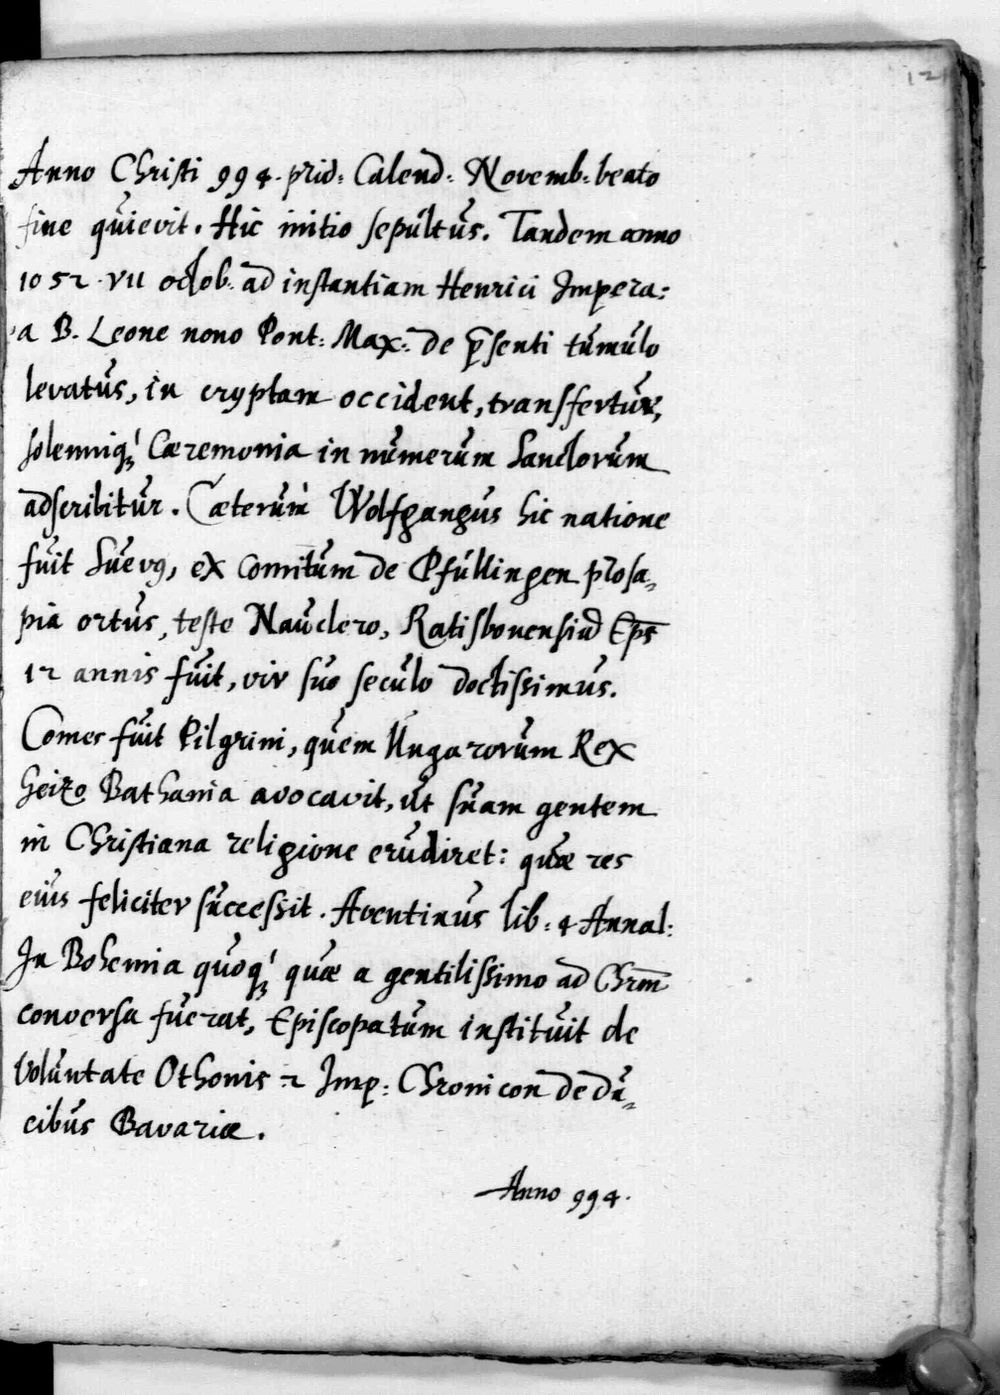 121
Anno Christi 994. prid: Calend: Novemb: beato
fine quievit. Hic initio sepultus. Tandem anno
1052. VII octob. ad instantiam Henrici Impera:
a B. Leone nono Pont: Max: de p̄senti tumulo
levatus, in cryptam occident, transfertur,
solemniq́ꝫ Cæremonia in numerum Sanctorum
adscribitur. Cæterum̀ Wolfgangus hic natione
fuit Suevꝰ, ex Comitum de Pfullingen prosa„
pia ortus, teste Nauclero, Ratisbonensiu̅ Ep̅s
12 annis fuit, vir suo seculo doctissimus.
Comes fuit Pilgrini, quem Ungarorum Rex
Geizo Bathania avocavit, ut suam gentem
in Christiana religione erudiret: quæ res
eius feliciter successit. Aventinus lib: 4 Annal:
In Bohemia quoq́ꝫ quæ a gentilissimo ad Chr̅m
conversa fuerat, Episcopatum instituit de
Voluntate Othonis 2 Imp: Chronicon de du„
cibus Bavariæ.
Anno 994.